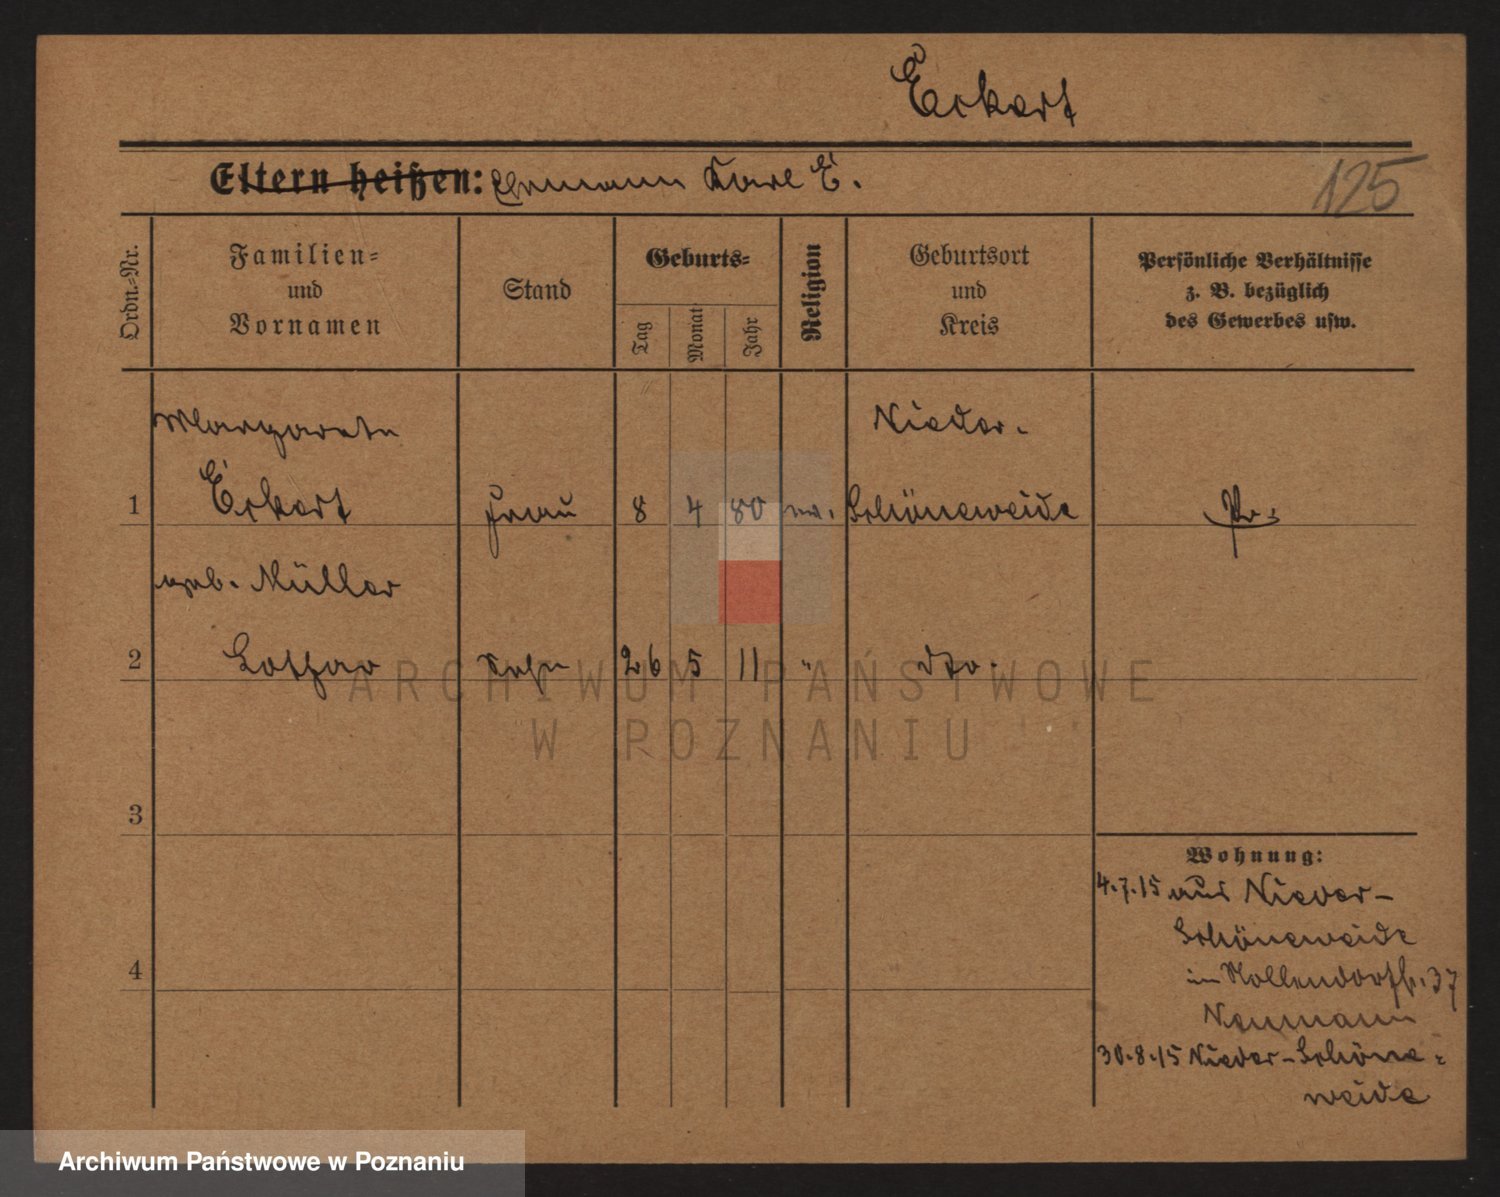 Eckert
Eltern heißen: Ehemann Karl E.
125
Ordn.-Nr.
Familien-
und
Vornamen
Stand
Geburts-
Tag
Monat
Jahr
Religion
Geburtsort
und
Kreis
Persönliche Verhältnisse
z. B. bezüglich
des Gewerbes usw.
Margarete
Nieder-
1 Eckert Frau 8 4 80 ev. Schöneweide Pr.
geb. Müller
2 Lothar Sohn 26 5 11 " dto.
3
4
Wohnung:
4.7.15 aus Nieder-
Schöneweide
in Nollendorfstr. 37
Neumann
30.8.15 Nieder-Schöne-
weide
ARCHIWUM PAŃSTWOWE
W POZNANIU
Archiwum Państwowe w Poznaniu